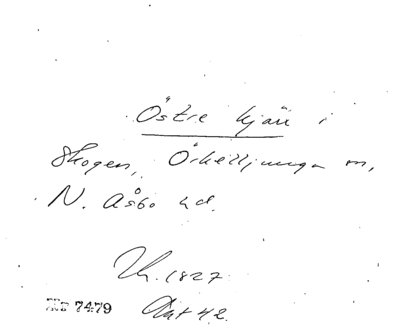 Östre kjäll i
Skogen, Örkelljunga sn,
N. Åsbo hd.
Th. 1827
No 7479 Ant 42.